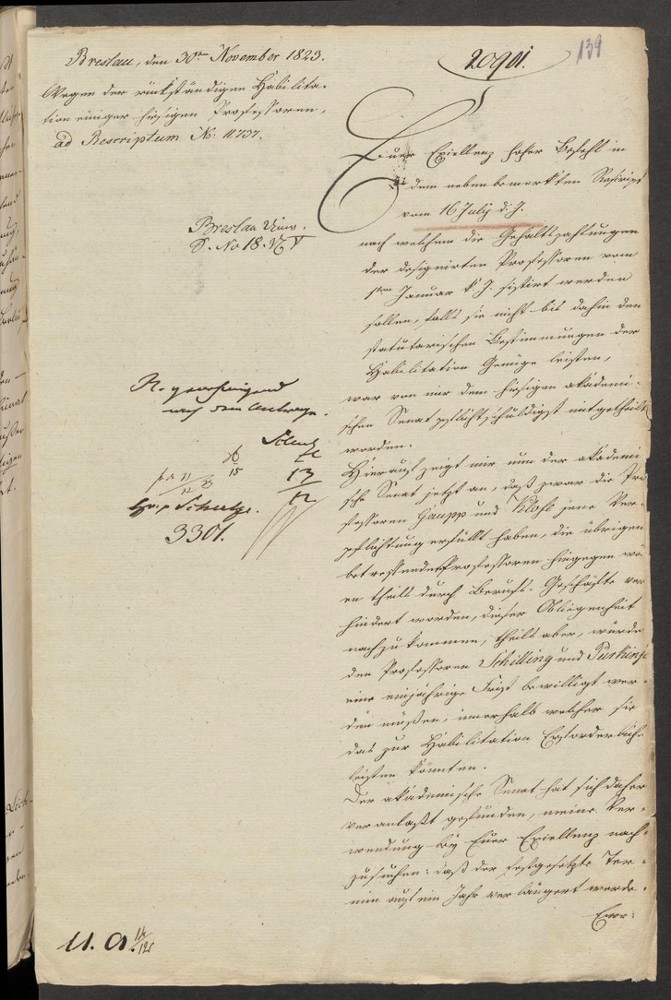 Breslau, den 30ten November 1823.
Wegen der rückständigen Habilita-
tion einiger hiesigen Professoren,
ad Rescriptum No. 11737.
20901.
139
Euer Excellenz hoher Befehl in
dem nebenbemerkten Rescript
vom 16 July d. J.
nach welchem die Gehaltszahlungen
der designirten Professoren vom
1ten Januar k. J. sistirt werden
sollen, falls sie nicht bis dahin den
statutarischen Bestimmungen der
Habilitation Genüge leisten,
war von mir dem hiesigen akademi-
schen Senat pflichtschuldigst mitgetheilt
worden.
Hierauf zeigt mir nun der akademi
sche Senat jetzt an, daß zwar die Pro
fessoren Gaupp und Klose jene Ver-
pflichtung erfüllt haben, die übrigen
betreffenden Professoren hingegen wä-
ren theils durch Berufs-Geschäfte ver
hindert worden, dieser Obliegenheit
nachzukommen, theils aber, würde
den Professoren Schilling und Purkinje
eine einjährige Frist bewilligt wer-
den müßen, innerhalb welcher sie
das zur Habilitation Erforderliche
leisten könnten.
Der akademische Senat hat sich daher
veranlaßt gefunden, meine Ver-
wendung bey Euer Excellenz nach-
zusuchen: daß der festgesetzte Ter-
min auf ein Jahr verlängert werde.
Euer:
Breslau Univ.
S. No 18.
nach dem Antrage.
Schultz
13
12
Schulze.
3301.